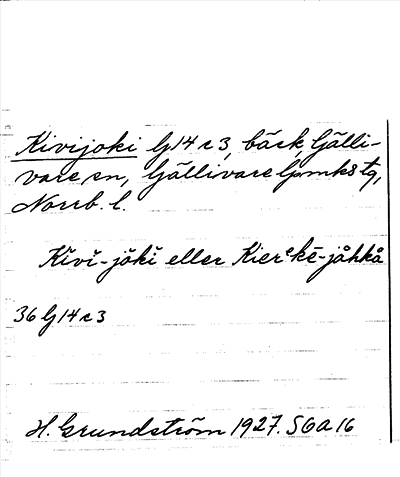 Kivijoki G14 c 3, bäck, Gälli-
vare sn, Gällivare lpmks tg,
Norrb. l.
Kĭvĭ-jŏkĭ eller Kierᵉkē-jåhkå
36 G 14 c 3
H. Grundström 1927. S6a16